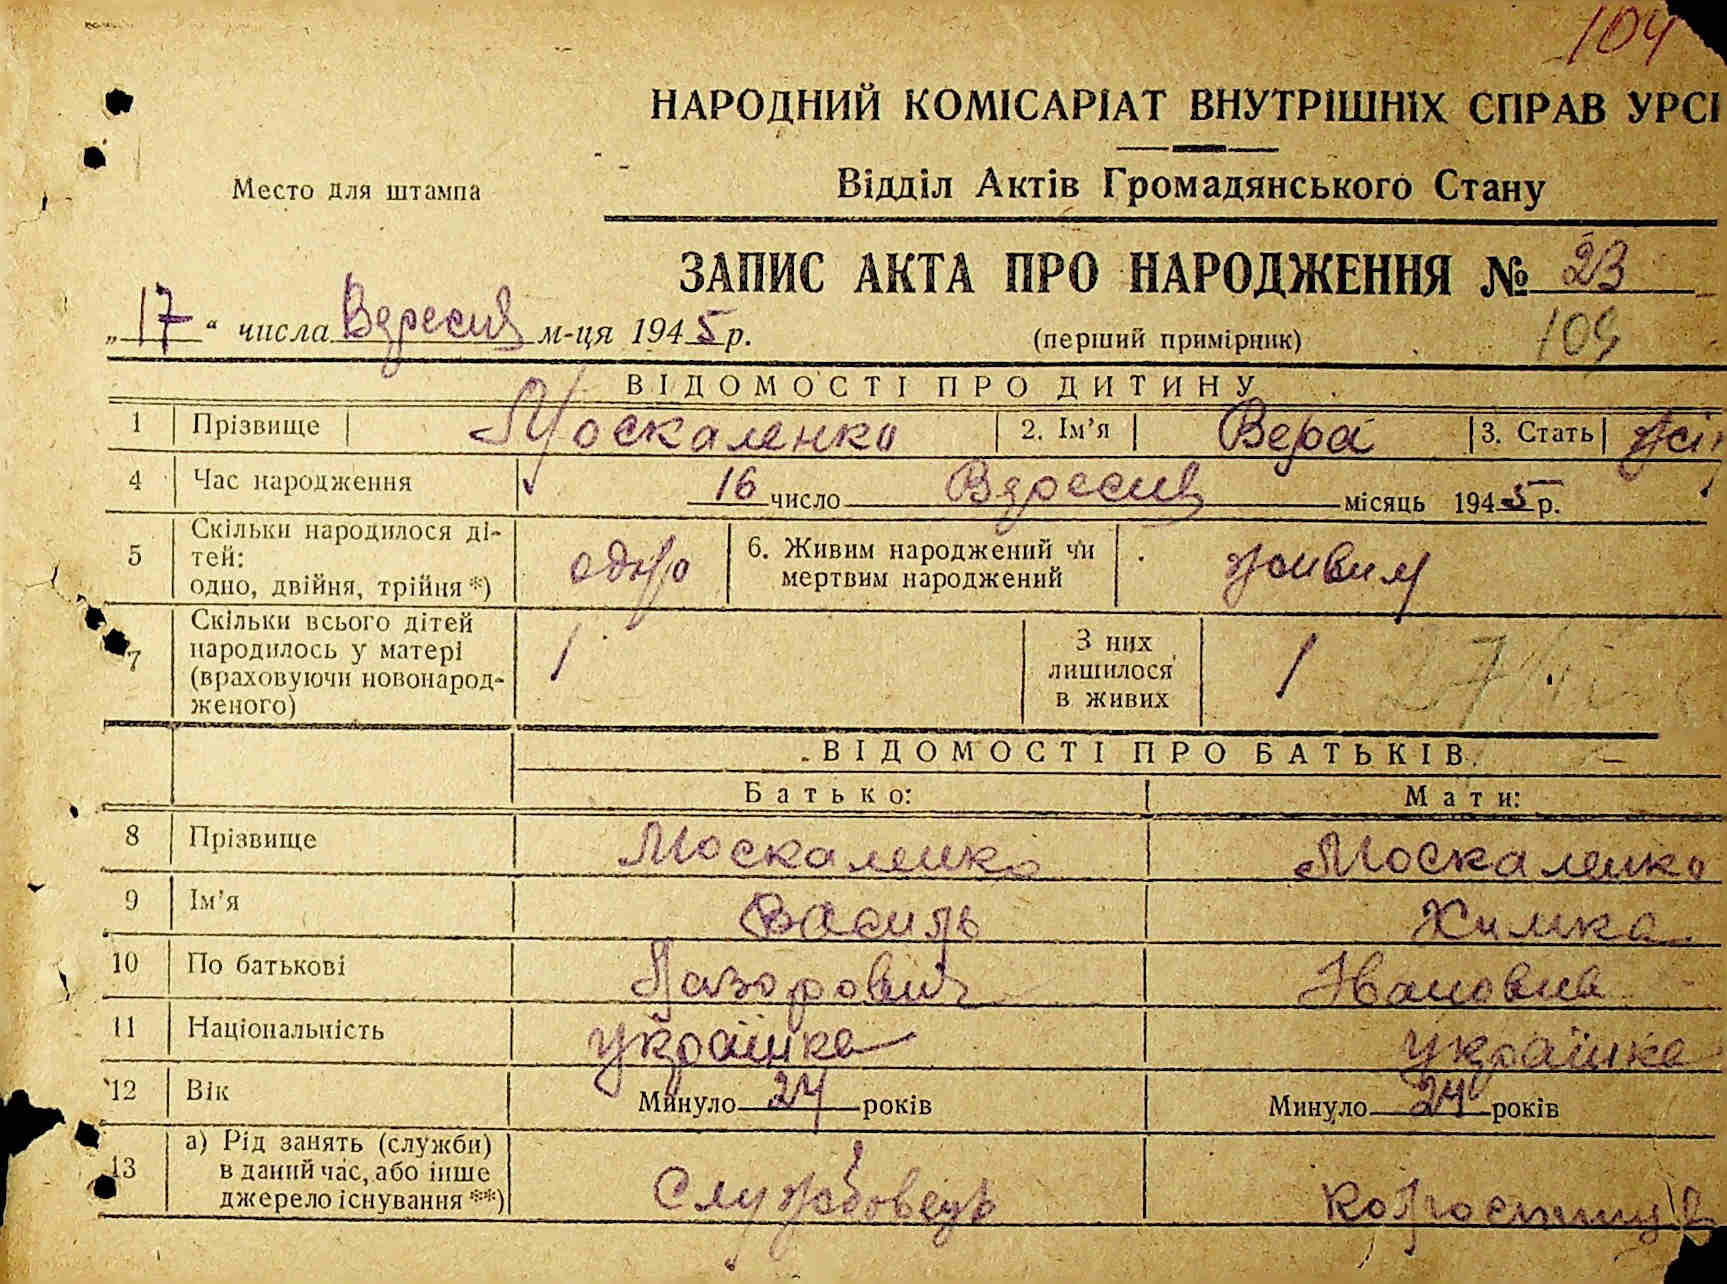 104
НАРОДНИЙ КОМІСАРІАТ ВНУТРІШНІХ СПРАВ УРСІ
Место для штампа
Відділ Актів Громадянського Стану
ЗАПИС АКТА ПРО НАРОДЖЕННЯ № 23
„17“ числа Вдресня м-ця 1945 р.
(перший примірник)
109
ВІДОМОСТІ ПРО ДИТИНУ
1 Прізвище Москаленко 2. Ім’я Вера 3. Стать жін
4 Час народження 16 число Вдресня місяць 1945 р.
5 Скільки народилося ді-
тей:
одно, двійня, трійня *) одно
6. Живим народжений чи
мертвим народжений живим
7 Скільки всього дітей
народилось у матері
(враховуючи новонарод-
женого) 1
З них
лишилося
в живих 1
ВІДОМОСТІ ПРО БАТЬКІВ
Батько: Мати:
8 Прізвище Москаленко Москаленко
9 Ім’я Василь Химка
10 По батькові Лазорович Ивановна
11 Національність українка українка
12 Вік Минуло 24 років Минуло 24 років
13 а) Рід занять (служби)
в даний час, або інше
джерело існування **) Службовець Колгоспниця